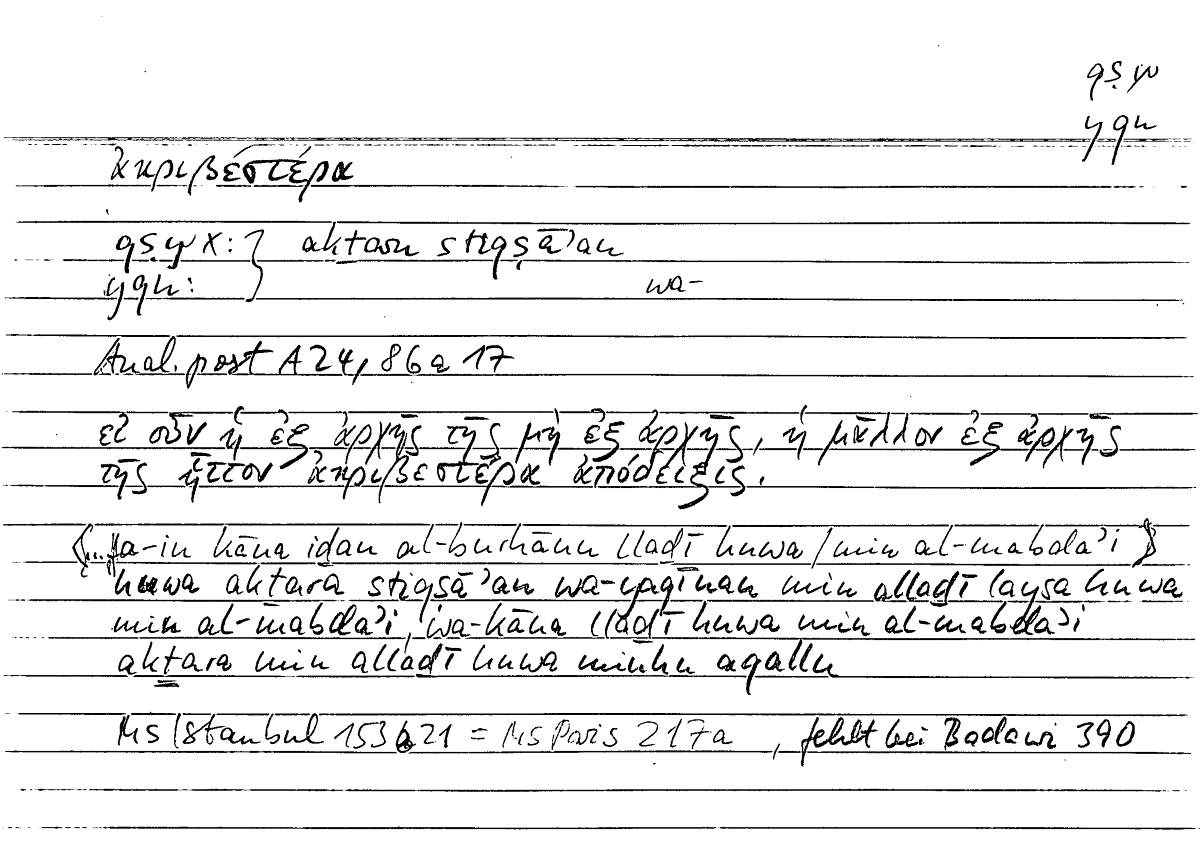 qṣw
yqn
ἀκριβέστέρα
qṣw X: } akṯaru stiqṣāʾan
yqn:
wa-
Anal. post A 24, 86 a 17
εἰ οὖν ἡ ἐξ ἀρχῆς τῆς μὴ ἐξ ἀρχῆς, ἡ μᾶλλον ἐξ ἀρχῆς
τῆς ἧττον ἀκριβεστέρα ἀπόδειξις.
⟨... fa-in kāna iḏan al-burhānu llaḏī huwa / min al-mabdaʾi ⟩
huwa akṯara stiqṣāʾan wa-yaqīnan min allaḏī laysa huwa
min al-mabdaʾi, wa-kāna llaḏī huwa min al-mabdaʾi
akṯara min allaḏī huwa minhu aqallu
Ms Istanbul 153b21 = Ms Paris 217a , fehlt bei Badawi 390